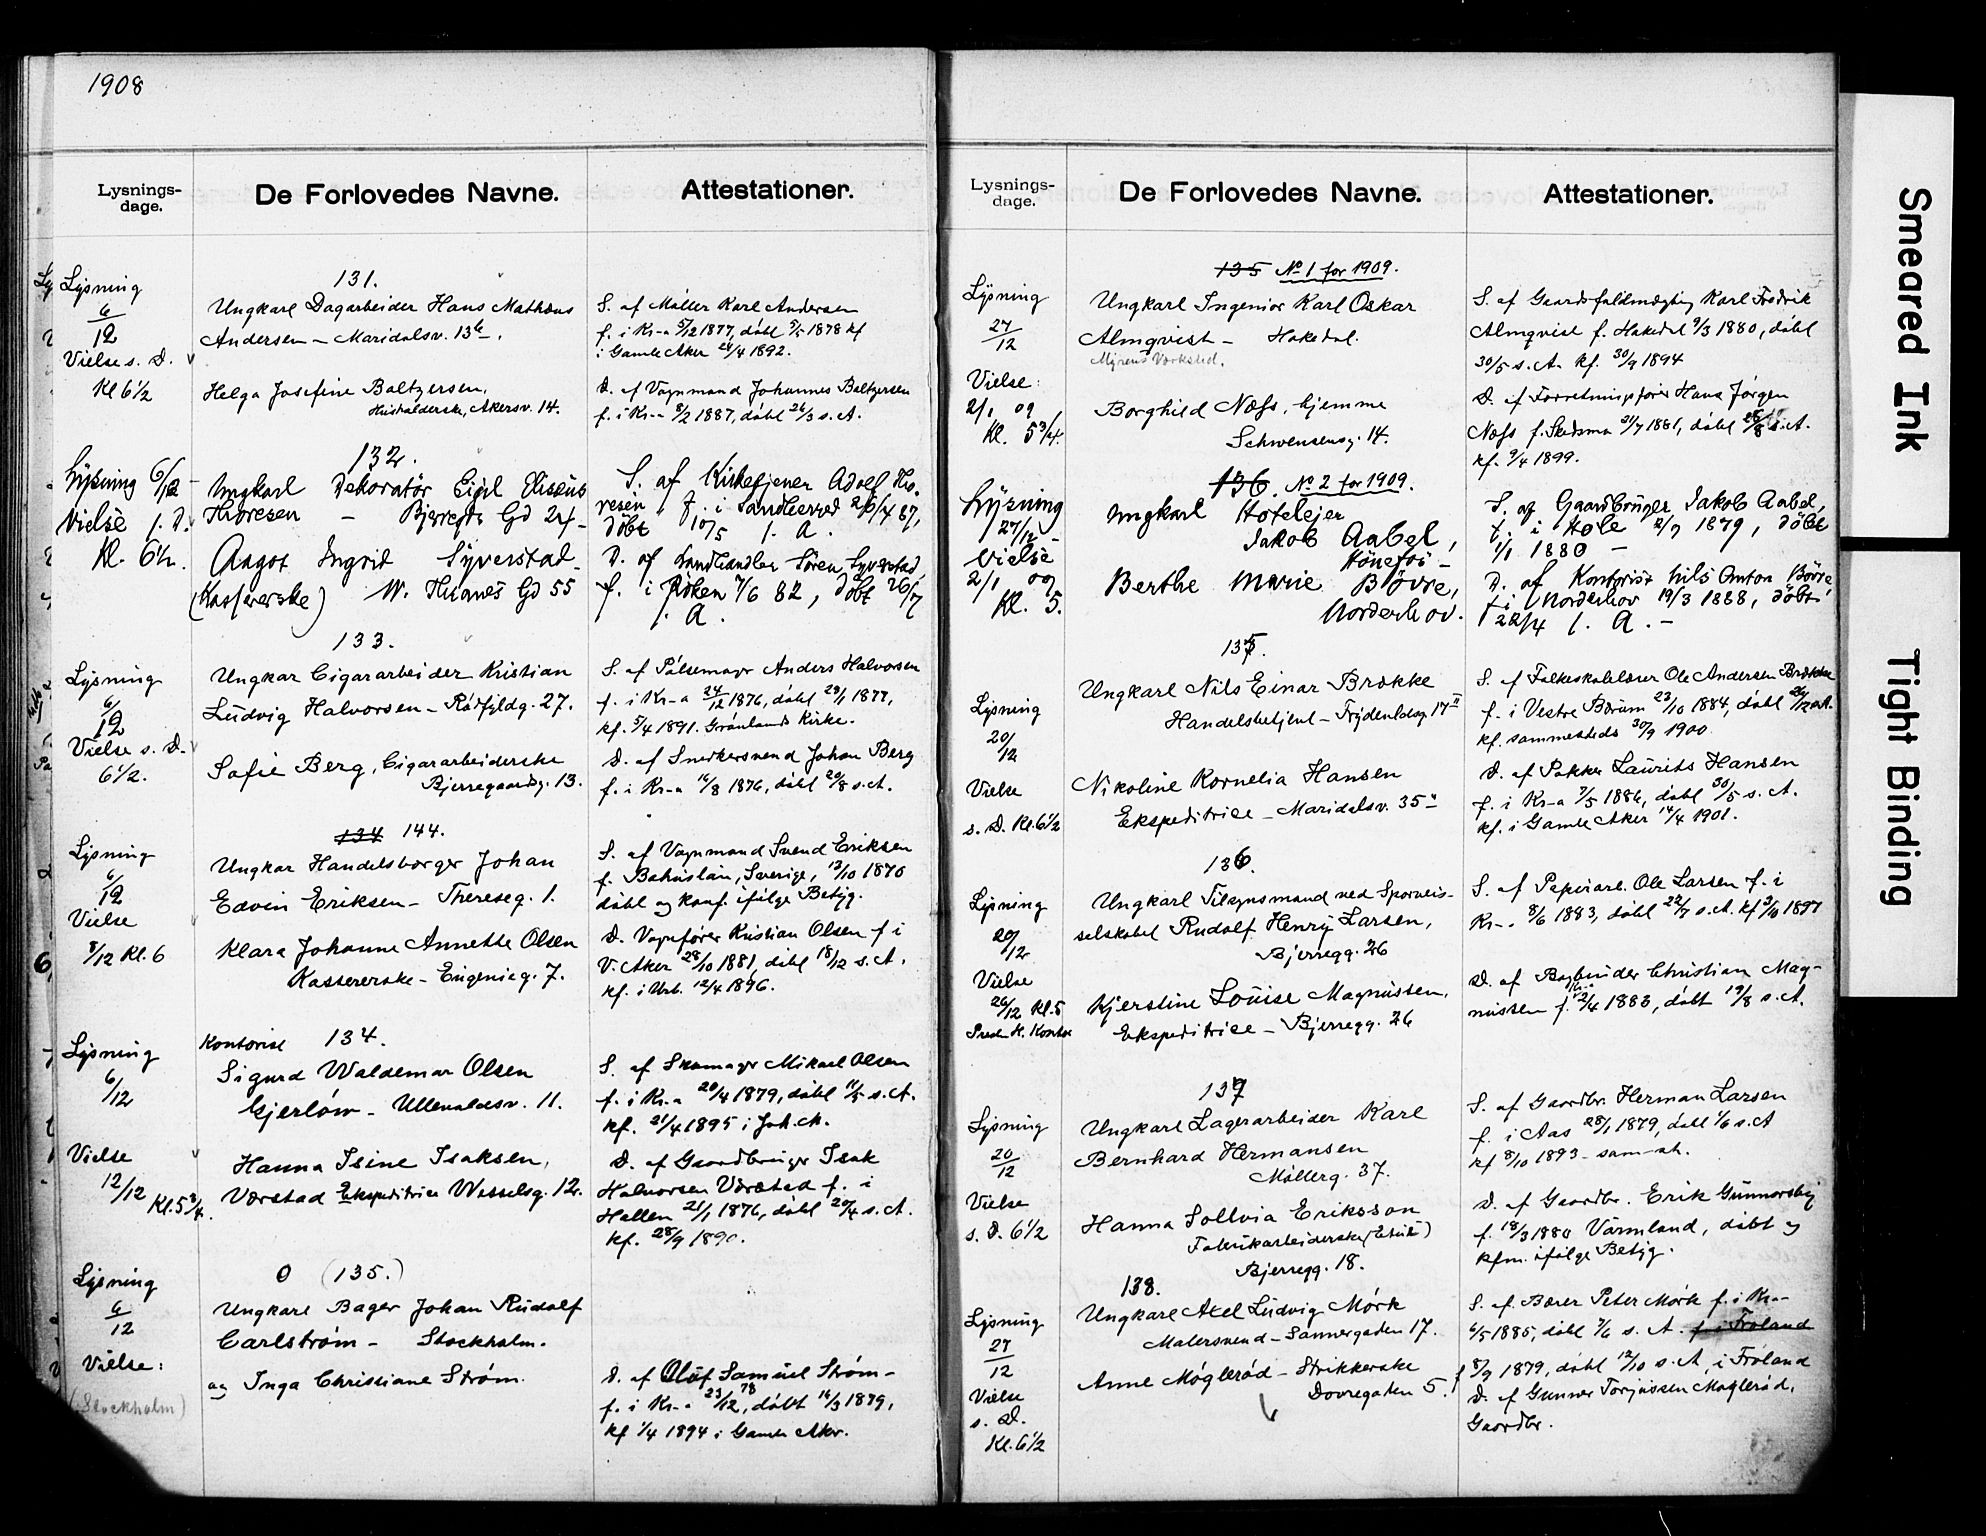 1908
Lysnings-
dage.
De Forlovedes Navne.
Attestationer.
Lysning
6/12
Vielse s. D.
Kl 6 1/2
131.
Ungkarl Dagarbeider Hans Mathæus
Andersen – Maridalsv. 13 b.
Helga Josefine Baltzersen,
Husholderske, Akersv. 14.
S. af Møller Karl Andersen
f. i Kr-a 9/12 1877, døbt 3/5 1878 kf
i Gamle Aker 24/4 1892.
D. af Vognmand Johannes Baltzersen
f. i Kr-a 8/2 1887, døbt 26/3 s. A.
Lysning 6/12 –
Vielse s. D.
Kl. 6 1/2.
132.
Ungkarl Dekoratör Egil Elisæus
Thoresen – Bjerregds Gd 24 –
Aagot Ingrid Syverstad
(Kassererske) W. Thranes Gd 55
S. af Kirketjener Adolf Tho-
resen f. i Sandleered 26/4 87,
döbt 10/5 s. A.
D. af Landhandler Sören Syverstad
f. i Röken 7/6 82, döbt 26/7
s. A.
133.
Lysning
6/12
Vielse s. D.
6 1/2.
Ungkar Cigararbeider Kristian
Ludvig Halvorsen – Rødfjeldg. 27.
Sofie Berg, Cigararbeiderske
Bjerregaardsg. 13.
S. af Pølsemagr Anders Halvorsen
f. i Kr-a 24/12 1876, døbt 29/1 1877,
kf. 5/4 1891. Grønlands Kirke.
D. af Snedkersvend Johan Berg
f. i Kr-a 16/8 1876, døbt 20/8 s. A.
134 144.
Lysning
6/12
Vielse
8/12 Kl. 6
Ungkar Handelsborger Johan
Edvin Eriksen – Thereseg. 1.
Klara Johanne Annette Olsen
Kassererske – Eugenieg. 7.
S. af Vognmand Svend Eriksen
f. Bohuslän, Sverige, 13/10 1870
døbt og konf. ifølge Betyg.
D. Vognfører Kristian Olsen f i
V. Aker 28/10 1881, døbt 18/12 s. A.
kf. i Urb. 12/4 1896.
Kontorist 134.
Lysning
6/12
Vielse
12/12 Kl. 5 3/4.
Sigurd Waldemar Olsen
Gjerløw – Ullevoldsv. 11.
Hanna Isine Isaksen,
Værstad Ekspeditrice Wesselsg. 12.
S. af Skomagr Mikael Olsen
f. i Kr-a 20/4 1879, døbt 11/5 s. A.
kf. 21/4 1895 i Joh. ch.
D. af Gaardbruger Isak
Halvorsen Værstad f. i
Hallen 21/1 1876, døbt 20/4 s. A.
kf. 28/9 1890.
0 (135.)
Lysning
6/12
Vielse:
(Stockholm)
Ungkarl Bager Johan Rudolf
Carlstrøm – Stockholm.
og Inga Christiane Strøm.
D. af Oluf Samuel Strøm –
f. i Kr-a 23/12 78, døbt 16/3 1879,
kf 1/4 1894 i Gamle Aker.
Lysnings-
dage.
De Forlovedes Navne.
Attestationer.
135 No 1 for 1909.
Lysning
27/12
Vielse:
2/1 09
Kl. 5 3/4.
Ungkarl Ingeniør Karl Oskar
Almqvist – Hakedal.
Myrens Værksted.
Borghild Næss, hjemme
Schwensensg. 14.
S. af Gaardsfuldmægtig Karl Fredrik
Almqvist f. Hakedal 9/3 1880, døbt
30/5 s. A. kf. 30/9 1894
D. af Forretningsfører Hans Jørgen
Næss f. Skedsmo 21/7 1881, døbt s. A.
kf. 9/4 1899.
136. No 2 for 1909.
Lysning
27/12 –
Vielse
2/1 09
Kl. 5.
Ungkarl Hotelejer
Jakob Aabel,
Hönefos –
Berthe Marie Bövre,
Norderhov.
S. af Gaardbruger Jakob Aabel,
f. i Hole 2/9 1879, döbt
1/1 1880 –
D. af Kontorist Nils Anton Bövre
f i Norderhov 19/3 1888, döbt
22/4 s. A. –
135.
Lysning
20/12
Vielse
s. D. Kl. 6 1/2
Ungkarl Nils Einar Brække
Handelsbetjent – Frydenldsg 17 II
Nikoline Kornelia Hansen
Ekspeditrice – Maridalsv. 35
S. af Folkeskolelærer Ole Andersen Brække
f. i Vestre Bærum 23/10 1884, døbt 26/12 s. A.
kf. sammesteds 30/9 1900
D. af Pakker Laurits Hansen
f. i Kr-a 7/5 1886, døbt 30/5 s. A.
kf. i Gamle Aker 14/4 1901.
136.
Lysning
20/12
Vielse
26/12 Kl. 5
Præsten H. Kontor
Ungkarl Tilsynsmand ved Sporveis-
selskabet Rudolf Henry Larsen,
Bjerregg. 26
Kjerstine Louise Magnussen,
Ekspeditrice – Bjerregg. 26
S. af Papirarb. Ole Larsen f. i
Kr-a 8/6 1883, døbt 22/7 s. A. kf 3/10 1897
D. af Bogbinder Christian Mag-
nussen f. 12/4 1883, døbt 19/8 s. A.
137
Lysning
20/12
Vielse
s. D. 6 1/2
Ungkarl Lagerarbeider Karl
Bernhard Hermansen
Møllerg. 37.
Hanna Sollvia Eriksson
Fabrikarbeiderske
Bjerregg. 18.
S. af Gaardbr. Herman Larsen
f. i Aas 28/1 1879, døbt 1/6 s. A
kf 8/10 1893 – sam – st.
D. af Gaardbr. Erik Gunnarsby
f. 18/3 1880 Värmland, døbt og
kfm. ifølge Betyg.
138.
Lysning
27/12
Vielse
s. D.
Kl. 6 1/2
Ungkarl Axel Ludvig Mørk
Malersvend – Sannergaden 17.
Anne Møglerød – Strikkerske
Dovregaden 5.
S. af Bærer Peter Mørk f. i Kr-a
6/5 1885, døbt 7/6 s. A. f. i Froland
f. 8/9 1879, døbt 12/10 s. A. i Froland
D. af Gunner Torjussen Møglerød,
Gaardbr.
Smeared Ink
Tight Binding